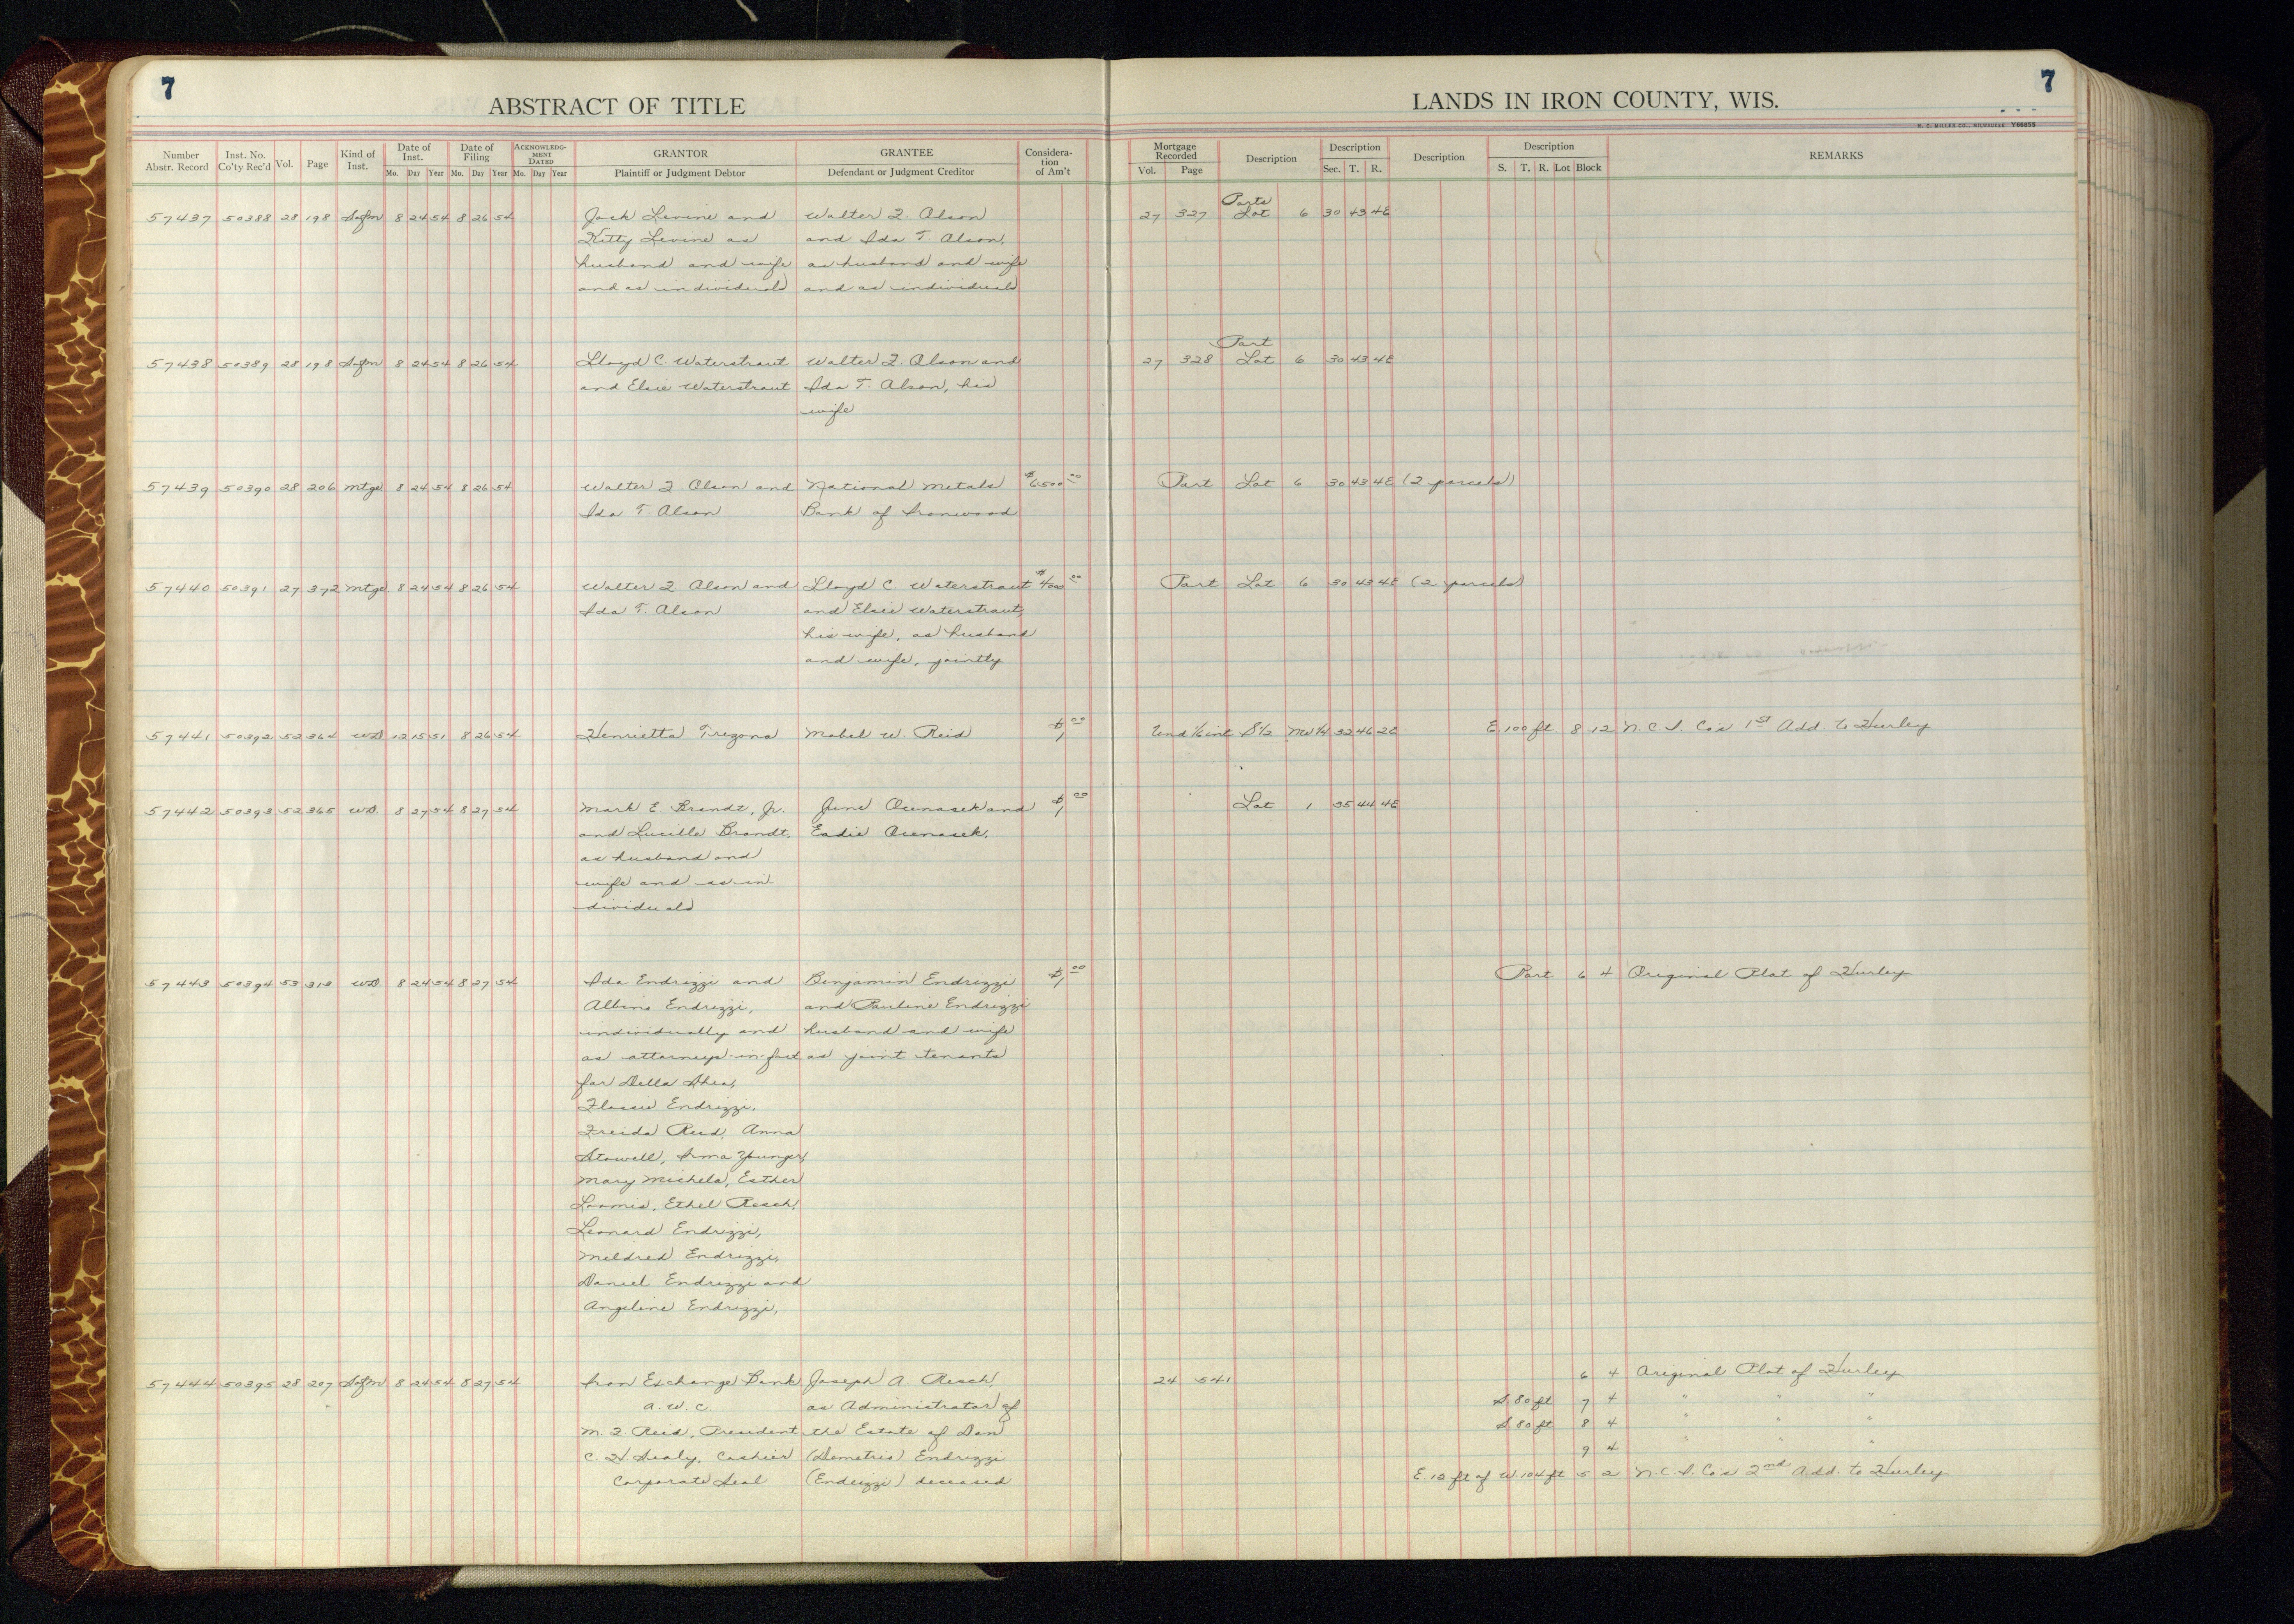 7
7
ABSTRACT OF TITLE
LANDS IN IRON COUNTY, WIS.
H. C. MILLER CO., MILWAUKEE Y66855
Number Abstr. Record Inst. No. Co'ty Rec'd Vol. Page Kind of Inst. Date of Inst. Mo. Day Year Date of Filing Mo. Day Year ACKNOWLEDGMENT DATED Mo. Day Year GRANTOR Plaintiff or Judgment Debtor GRANTEE Defendant or Judgment Creditor Consideration of Am't Mortgage Recorded Vol. Page Description Description Sec. T. R. Description Description S. T. R. Lot Block REMARKS
Parts
57437 50388 28 198 Sofm 8 24 54 8 26 54 Jack Levine and Walter F. Olson 27 327 Lot 6 30 43 4E
Kitty Levine as and Ida T. Olson,
husband and wife as husband and wife
and as individuals and as individuals
Part
57438 50389 28 198 Sofm 8 24 54 8 26 54 Lloyd C. Waterstraut Walter F. Olson and 27 328 Lot 6 30 43 4E
and Elsie Waterstraut Ida T. Olson, his
wife
57439 50390 28 206 Mtge 8 24 54 8 26 54 Walter F. Olson and National Metals $6500.00 Part Lot 6 30 43 4E (2 parcels)
Ida T. Olson Bank of Ironwood
57440 50391 27 372 Mtge 8 24 54 8 26 54 Walter F. Olson and Lloyd C. Waterstraut Part Lot 6 30 43 4E (2 parcels)
Ida T. Olson and Elsie Waterstraut,
his wife, as husband
and wife, jointly
57441 50392 52 364 WD 12 15 51 8 26 54 Henrietta Trezona Mabel W. Reid $1.00 Und 1/6 int S1/2 NW1/4 32 46 2E E. 100 ft. 8 12 N.C.I. Co's 1st Add. to Hurley
57442 50393 52 365 WD. 8 27 54 8 27 54 Mark E. Brandt, Jr. June Ocenasek and $1.00 Lot 1 35 44 4E
and Lucille Brandt, Eadie Ocenasek.
as husband and
wife and as in-
dividuals
57443 50394 53 313 WD. 8 24 54 8 27 54 Ida Endrizzi and Benjamin Endrizzi $1.00 Part 6 4 Original Plat of Hurley
Albino Endrizzi, and Pauline Endrizzi
individually and husband and wife
as attorneys-in-fact as joint tenants
for Della Shea,
Flossie Endrizzi,
Freida Reed, Anna
Stowell, Irma Younger,
Mary Michela, Esther
Loomis, Ethel Resch,
Leonard Endrizzi,
Mildred Endrizzi,
Daniel Endrizzi and
Angeline Endrizzi,
57444 50395 28 207 Sofm 8 24 54 8 27 54 Iron Exchange Bank Joseph A. Resch, 24 541 6 4 Original Plat of Hurley
a. W. C. as Administrator of S. 80 ft 7 4 " " "
M. F. Reed, President the Estate of Dan S. 80 ft 8 4 " " "
C. H. Sealy, Cashier (Demetrio) Endrizzi 9 4 " " "
Corporate Seal (Endrizzi) deceased E. 12 ft of W. 104 ft 5 2 N.C.I. Co's 2nd Add. to Hurley